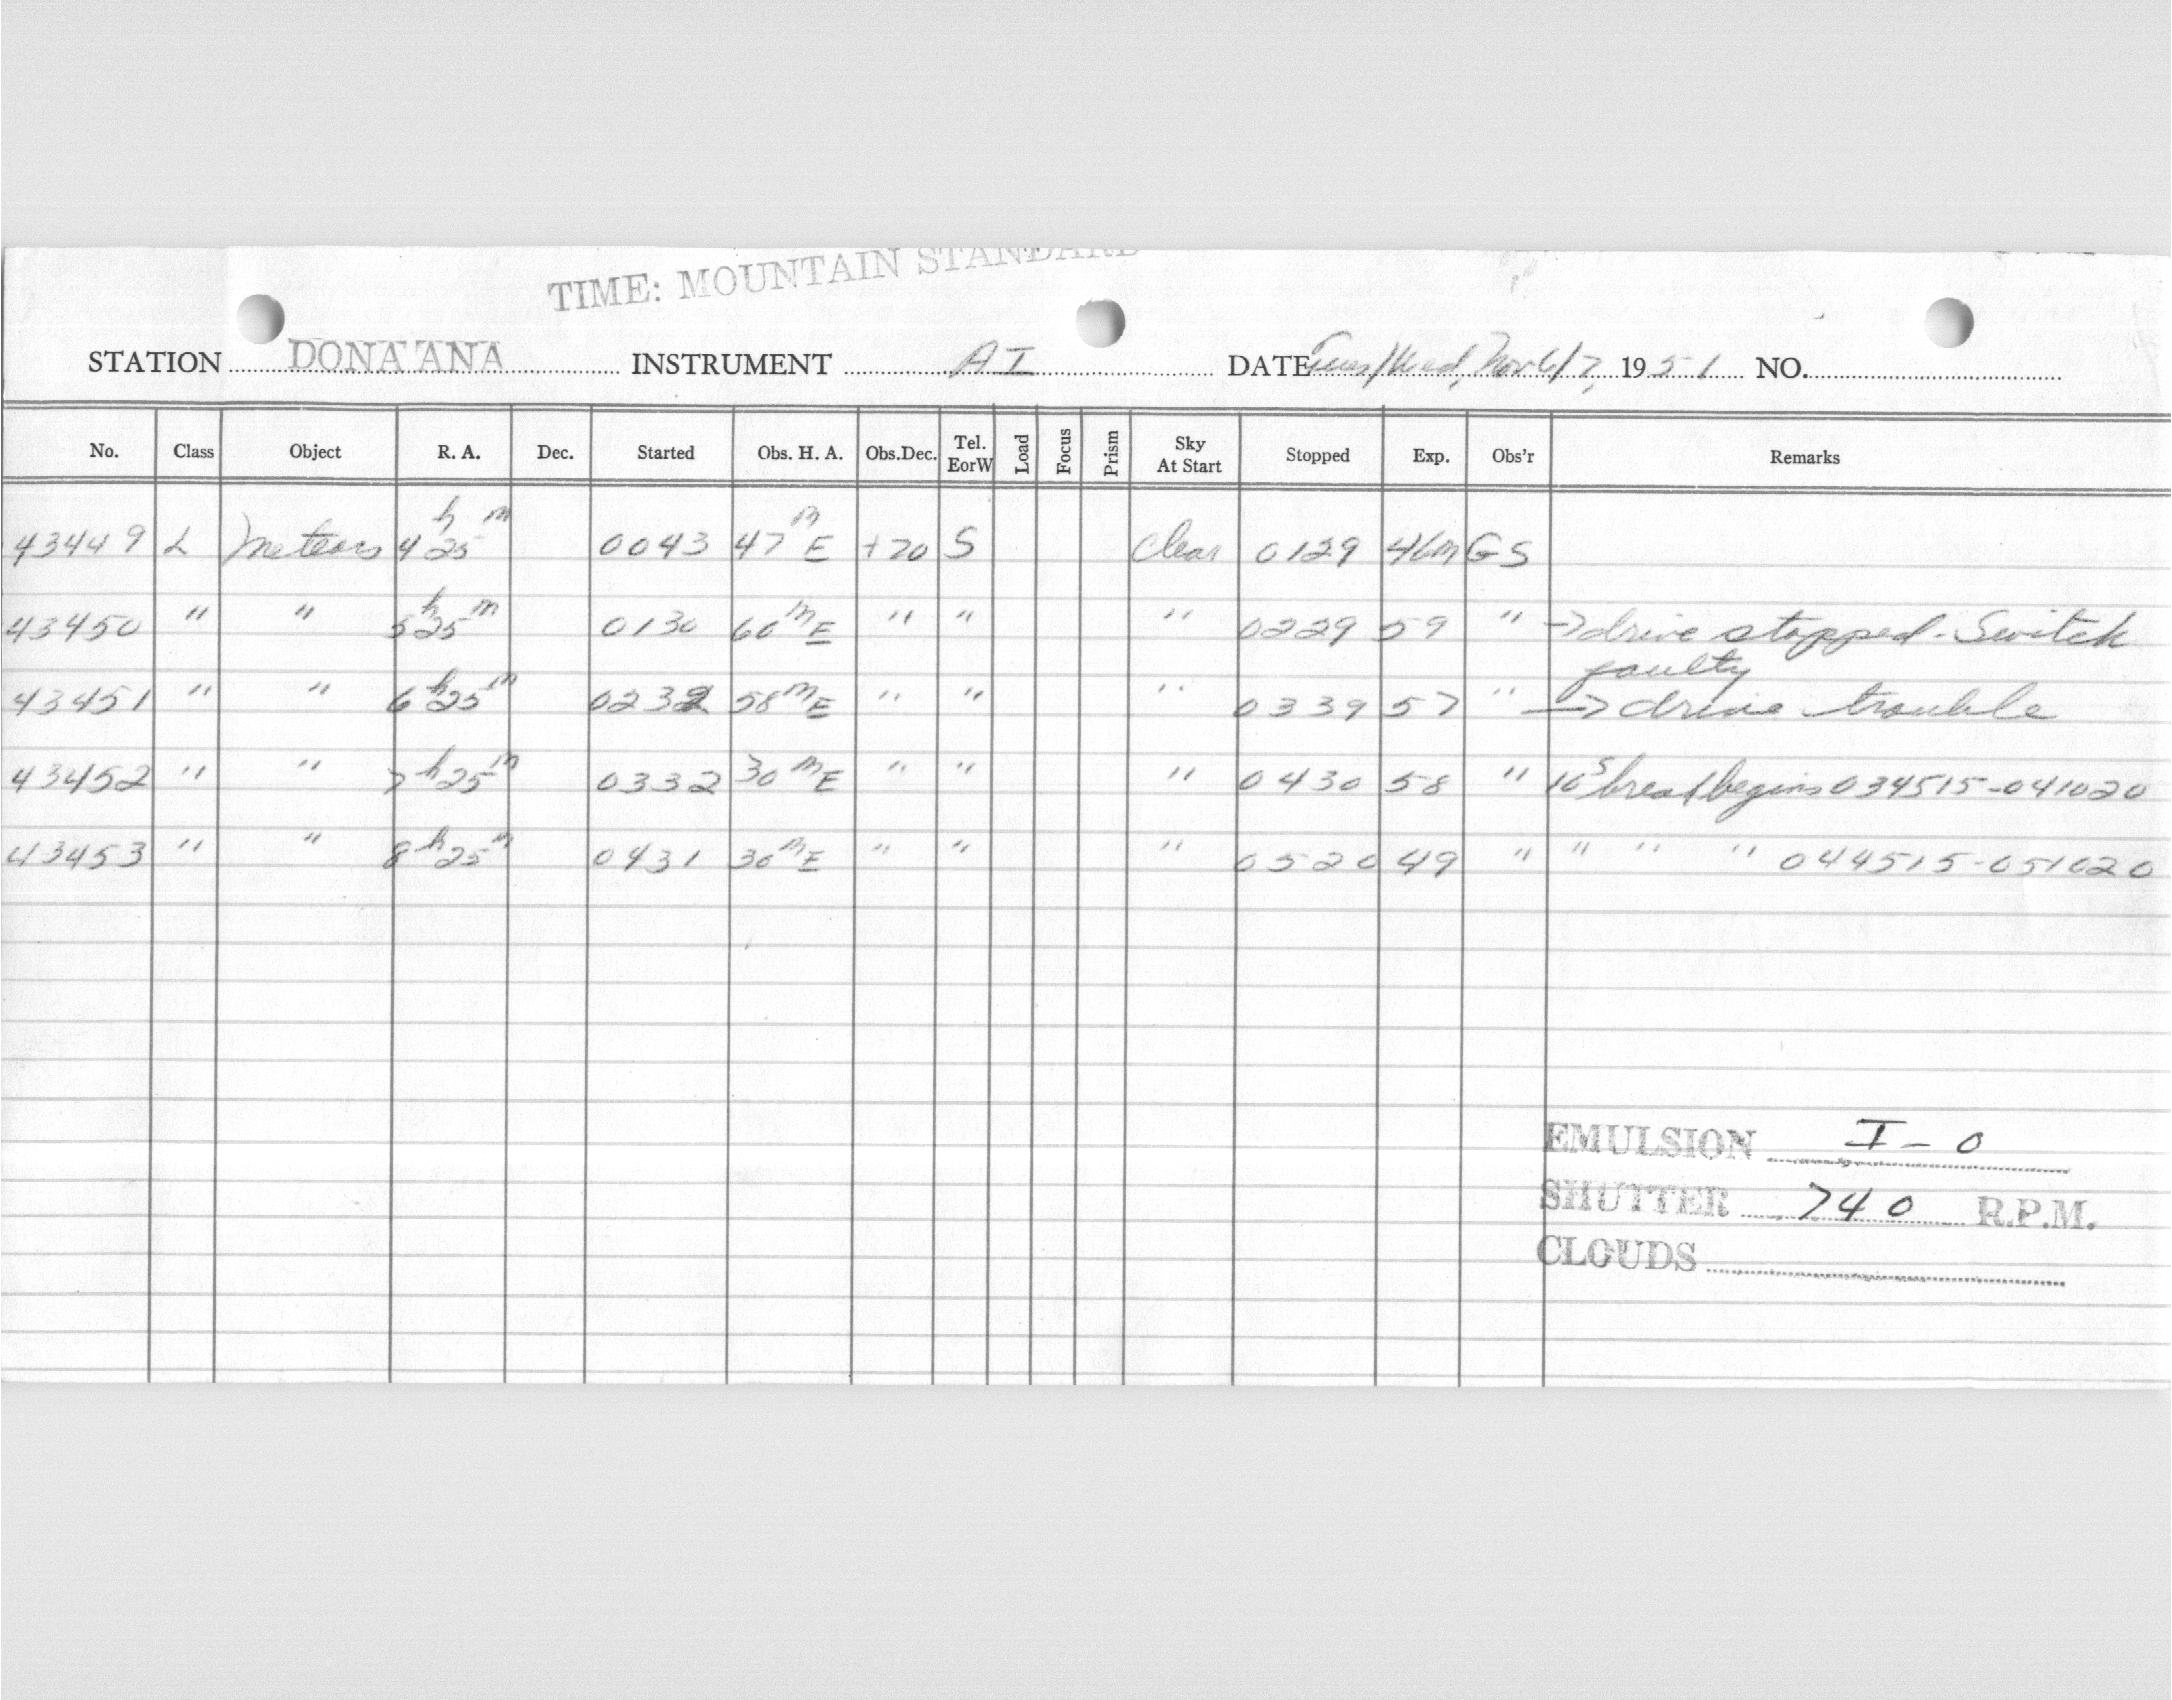 TIME: MOUNTAIN STANDARD
STATION DONA ANA INSTRUMENT AI DATE Tues/Wed, Nov 6/7, 1951 NO.
No. Class Object R. A. Dec. Started Obs. H. A. Obs.Dec. Tel. EorW Load Focus Prism Sky At Start Stopped Exp. Obs'r Remarks
43449 L Meteors 4h 25m 0043 47m E +20 S Clear 0129 46m GS
43450 " " 5h 25m 0130 60m E " " " 0229 59 " → drive stopped - Switch
faulty
43451 " " 6h 25m 0232 58m E " " " 0339 57 " → drive trouble
43452 " " 7h 25m 0332 30m E " " " 0430 58 " 10s break begins 034515-041020
43453 " " 8h 25m 0431 30m E " " " 0520 49 " " " " 044515-051020
EMULSION I-0
SHUTTER 740 R.P.M.
CLOUDS